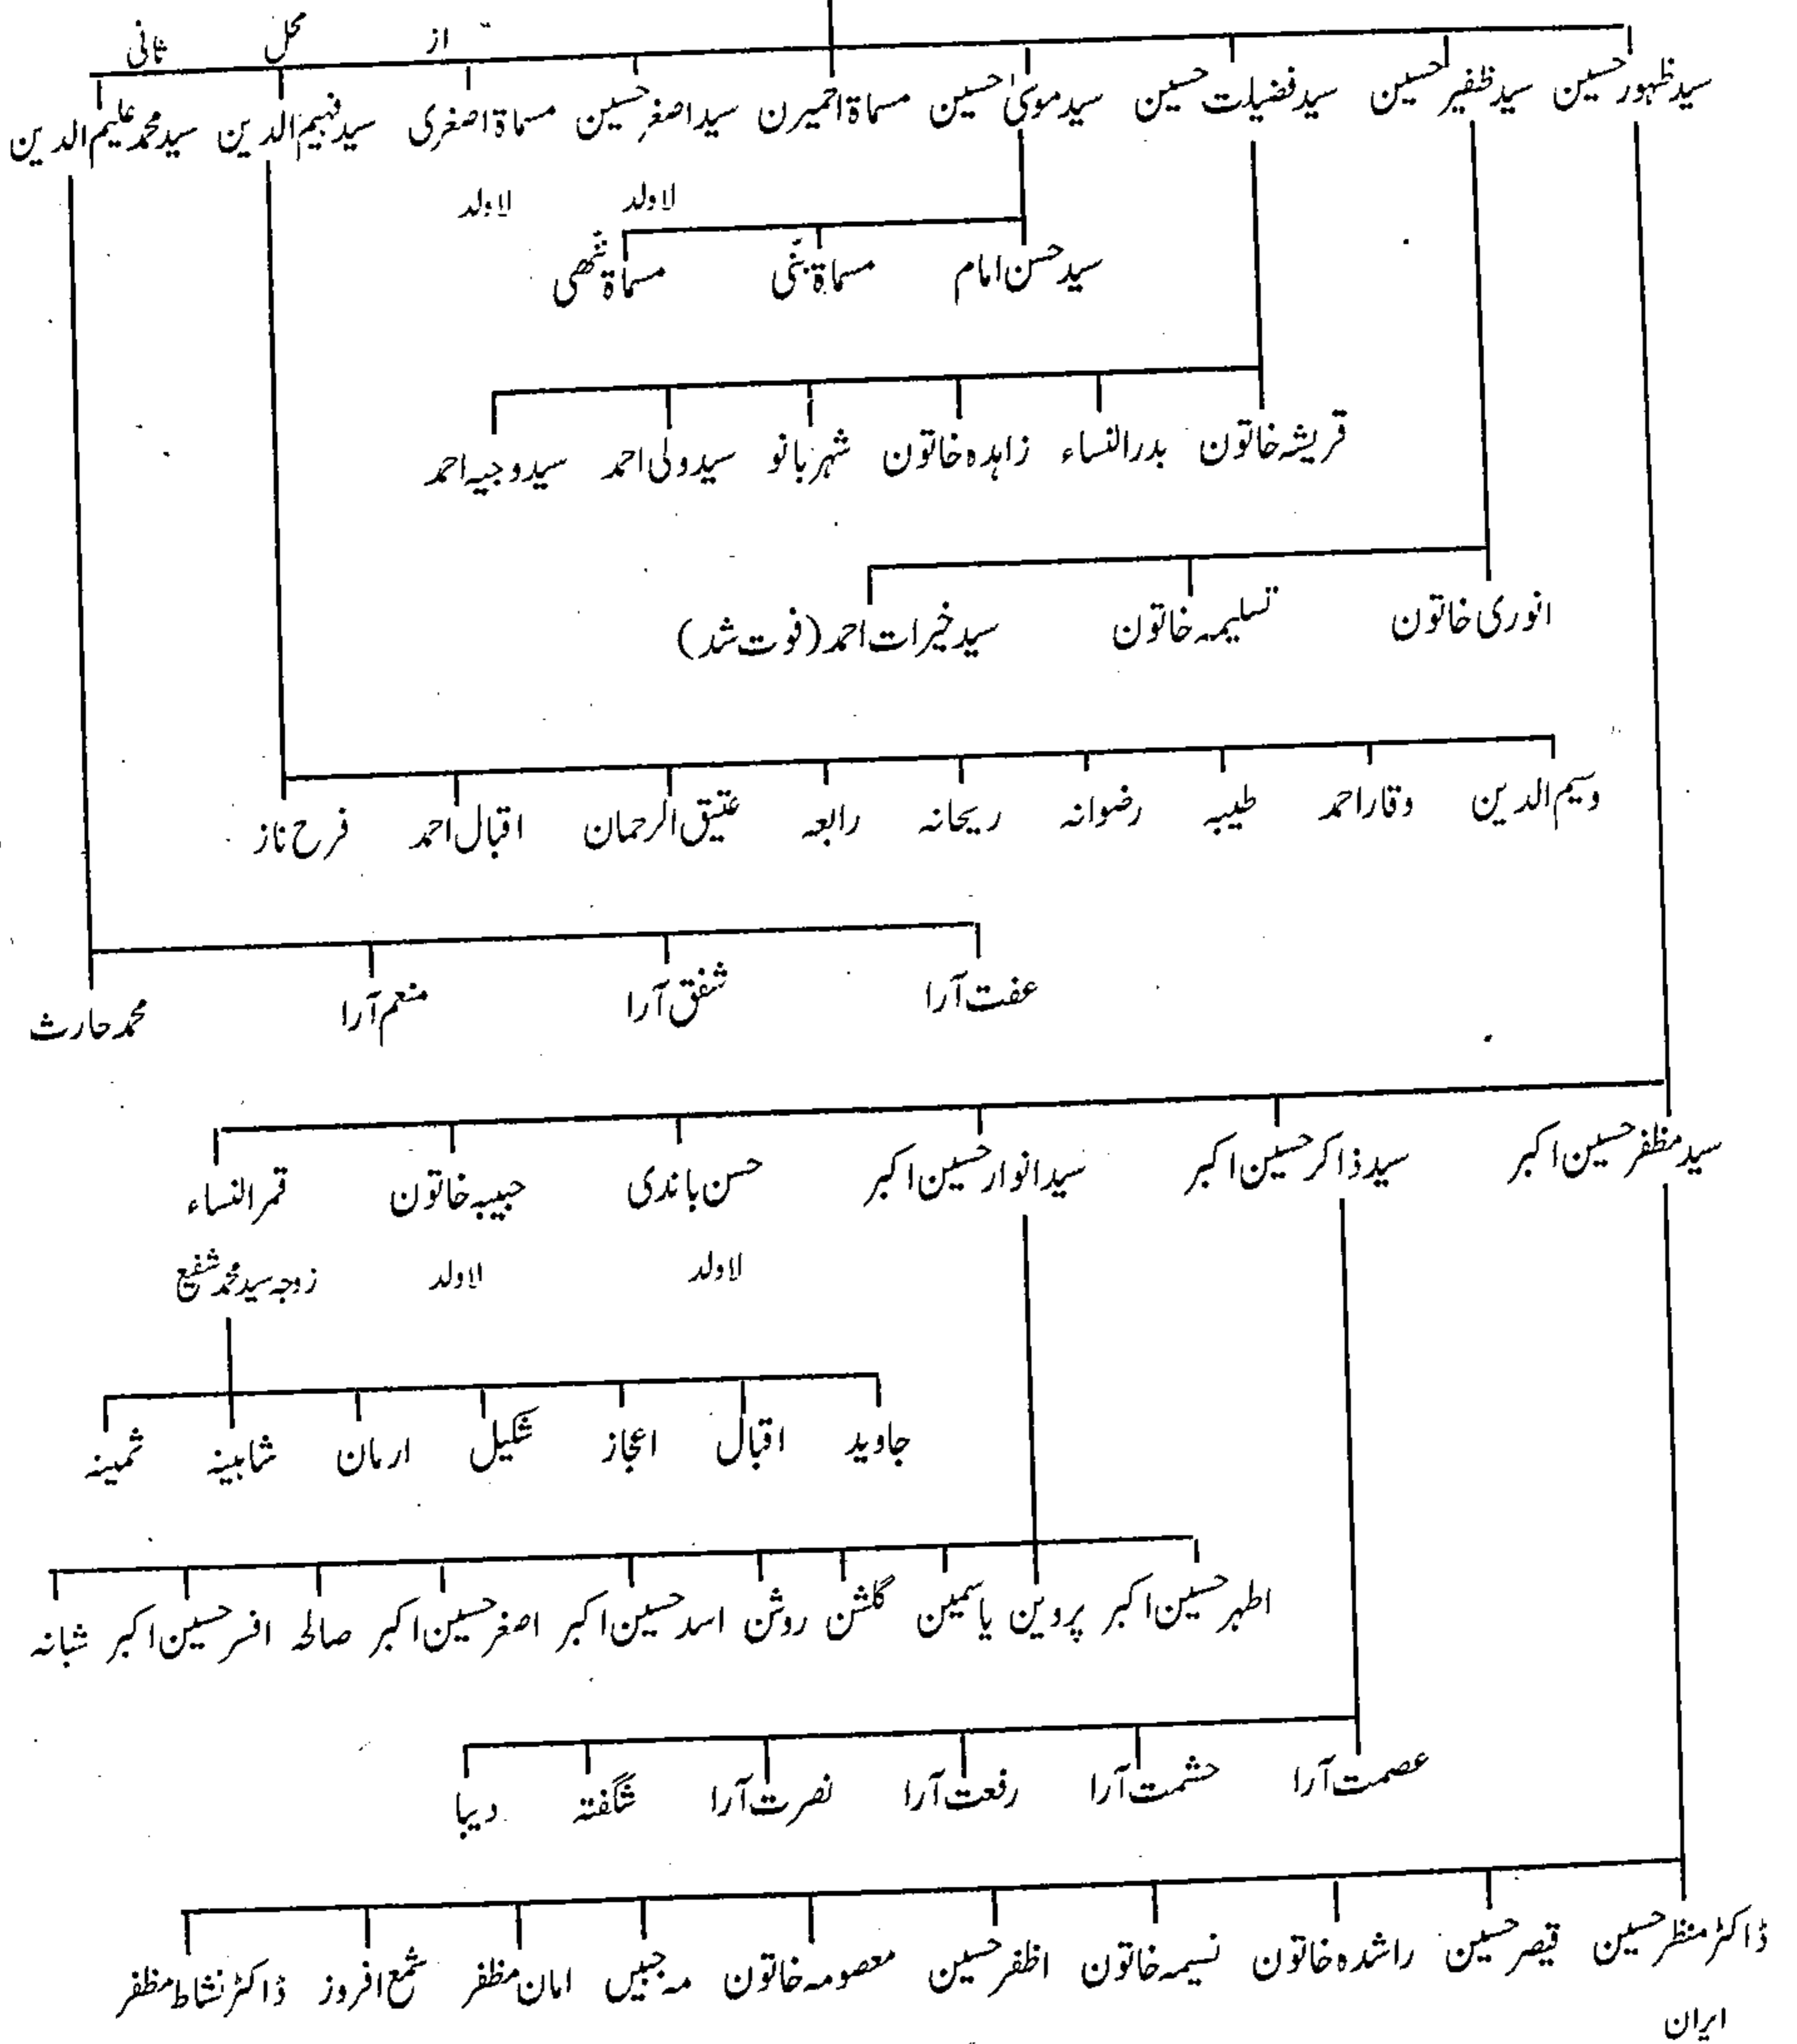 از محل ثانی
سید ظہور حسین سید ظفیر حسین سید فضیلت حسین سید موسیٰ حسین مسماۃ امیرن سید اصغر حسین مسماۃ اصغری سید فہیم الدین سید محمد علیم الدین
لاولد لاولد
سید حسن امام مسماۃ بنّی مسماۃ ننّھی
قریشہ خاتون بدر النساء زاہدہ خاتون شہر بانو سید ولی احمد سید وجیہ احمد
انوری خاتون تسلیمہ خاتون سید خیرات احمد (فوت شد)
وسیم الدین وقار احمد طیبہ رضوانہ ریحانہ رابعہ عتیق الرحمان اقبال احمد فرح ناز
عفت آرا شفق آرا منعم آرا محمد حارث
سید مظفر حسین اکبر سید ذاکر حسین اکبر سید انوار حسین اکبر حسن باندی حبیبہ خاتون قمر النساء
لاولد لاولد زوجہ سید محمد شفیع
جاوید اقبال اعجاز شکیل ارمان شاہینہ ثمینہ
اطہر حسین اکبر پروین یاسمین گلشن روشن اسد حسین اکبر اصغر حسین اکبر صالحہ افسر حسین اکبر شبانہ
عصمت آرا حشمت آرا رفعت آرا نصرت آرا شگفتہ دیبا
ڈاکٹر منظر حسین قیصر حسین راشدہ خاتون نسیمہ خاتون اظفر حسین معصومہ خاتون مہ جبیں امان مظفر شمع افروز ڈاکٹر نشاط مظفر
ایران